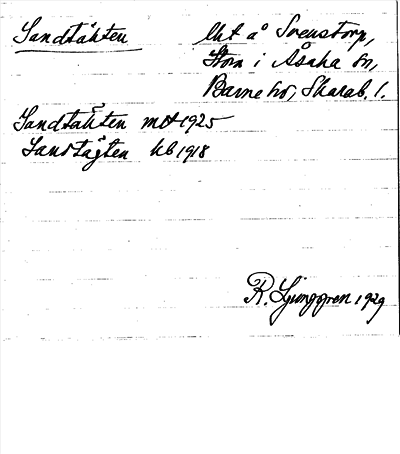 Sandtäkten
Lht å Svenstorp,
Stom i Åsaka sn,
Barne hd, Skarab. l.
Sandtäkten mtl 1925
Sandtägten kb 1918
R. Ljunggren 1929